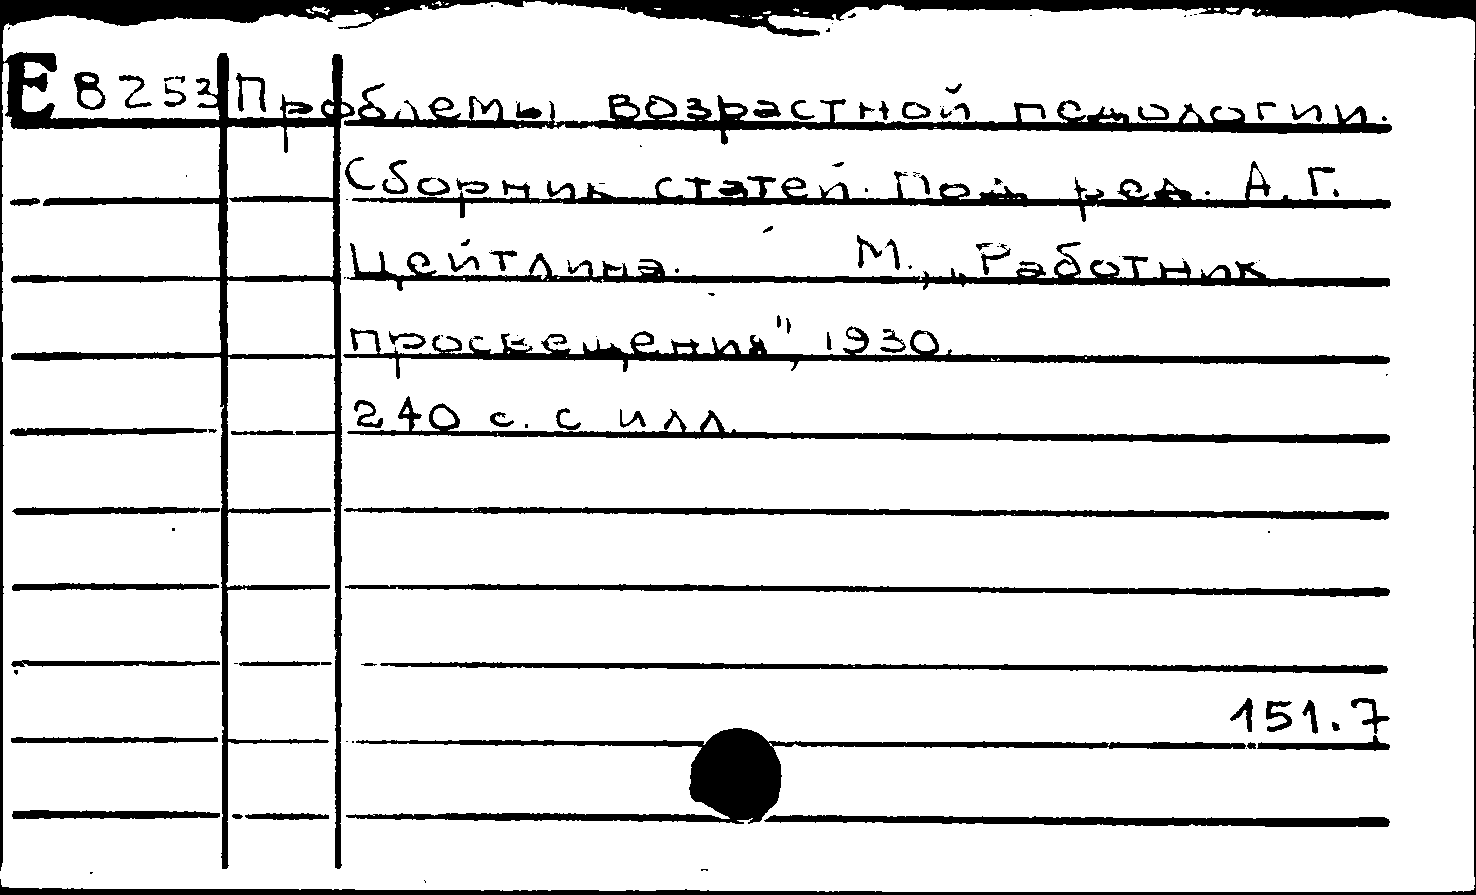 E 8253 Проблемы возрастной педологии.
Сборник статей. Под ред. А.Г.
Цейтлина. М., „Работник
просвещения", 1930.
240 с. с илл.
151.7